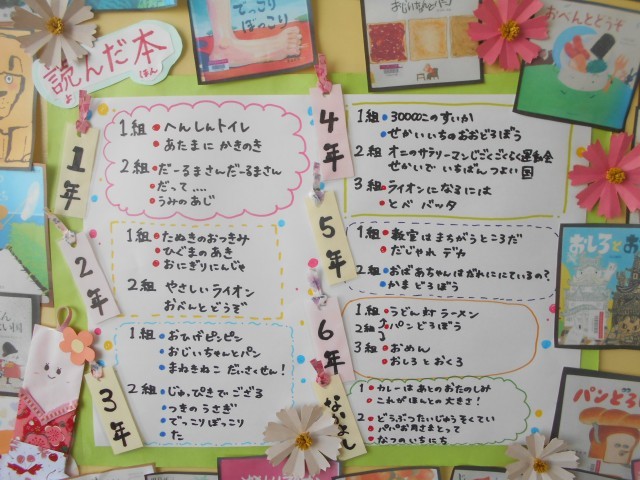 読んだ本
よ ほん
1年
1組 へんしんトイレ
あたまに かきのき
2組 だーるまさんだーるまさん
だって....
うみのあじ
2年
1組 たぬきのおつきみ
ひぐまのあき
おにぎりにんじゃ
2組 やさしいライオン
おべんとどうぞ
3年
1組 おひげピンピン
おじいちゃんとパン
まねきねこ だいさくせん!
2組 じゅっぴきでござる
つきのうさぎ
でっこりぼっこり
た
4年
1組 30000このすいか
せかいいちのおおどろぼう
2組 オニのサラリーマンじごくごくらく運動会
せかいで いちばんつよい国
3組 ライオンになるには
とべ バッタ
5年
1組 教室はまちがうところだ
だじゃれ デカ
2組 おばあちゃんはだれににているの?
かま どろぼう
6年
1組 うどん対ラーメン
2組 パンどろぼう
3組 おめん
おしろとおくろ
なかよし
1 カレーはあとのおたのしみ
これがほんとの大きさ!
2 どうぶつたいじゅうそくてい
パパお月さまとって
なつのいちにち
でっこりぼっこり
おじいちゃんとパン
おべんとどうぞ
おしろとお
パンどろ